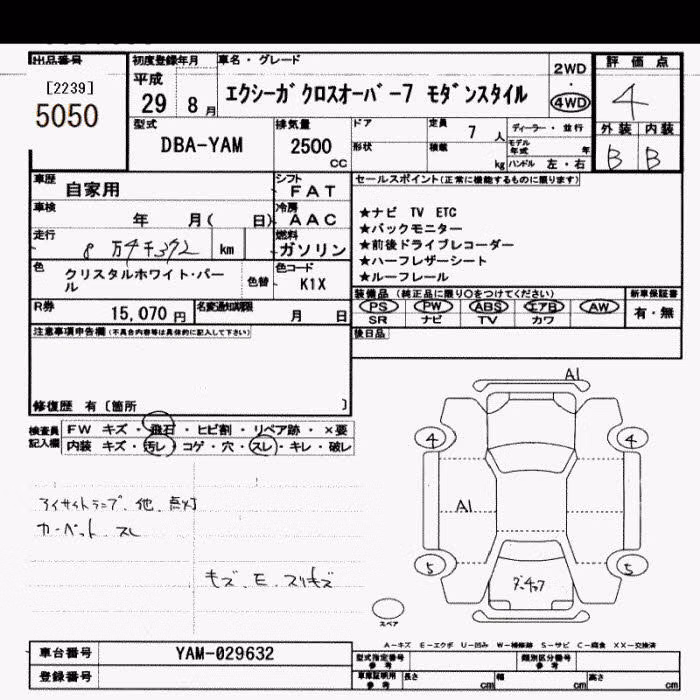 出品番号
[2239]
5050
初度登録年月
平成
29 8月
車名・グレード
エクシーガ クロスオーバー7 モダンスタイル
2WD
・
4WD
評価点
4
外装 内装
B B
型式
DBA-YAM
排気量
2500
CC
ドア
形状
定員 7人
積載 kg
ディーラー・並行
モデル年式 年
ハンドル 左・右
車歴 自家用
シフト FAT
車検 年 月( 日)
冷房 AAC
走行 8万4千392 km
燃料 ガソリン
色 クリスタルホワイト・パール
色替
色コード K1X
R券 15,070円
名変通知期限 月 日
セールスポイント(正常に機能するものに限ります)
★ナビ TV ETC
★バックモニター
★前後ドライブレコーダー
★ハーフレザーシート
★ルーフレール
装備品(純正品に限り○をつけてください)
PS PW ABS エアB AW
SR ナビ TV カワ
新車保証書
有・無
後日品
注意事項申告欄(不具合内容等は具体的に記入して下さい)
修復歴 有〔箇所 〕
検査員記入欄
FW キズ・飛石・ヒビ割・リペア跡・×要
内装 キズ・汚レ・コゲ・穴・スレ・キレ・破レ
アイサイトランプ、他、点灯
カーペット スレ
キズ、E、スリキズ
A1
4 4
A1
5 5
スペア
A-キズ E-エクボ U-凹み W-補修跡 S-サビ C-腐食 XX-交換済
車台番号 YAM-029632
登録番号
型式指定番号 参考
類別区分番号 参考
車庫証明用 参考 長さ cm 幅 cm 高さ cm